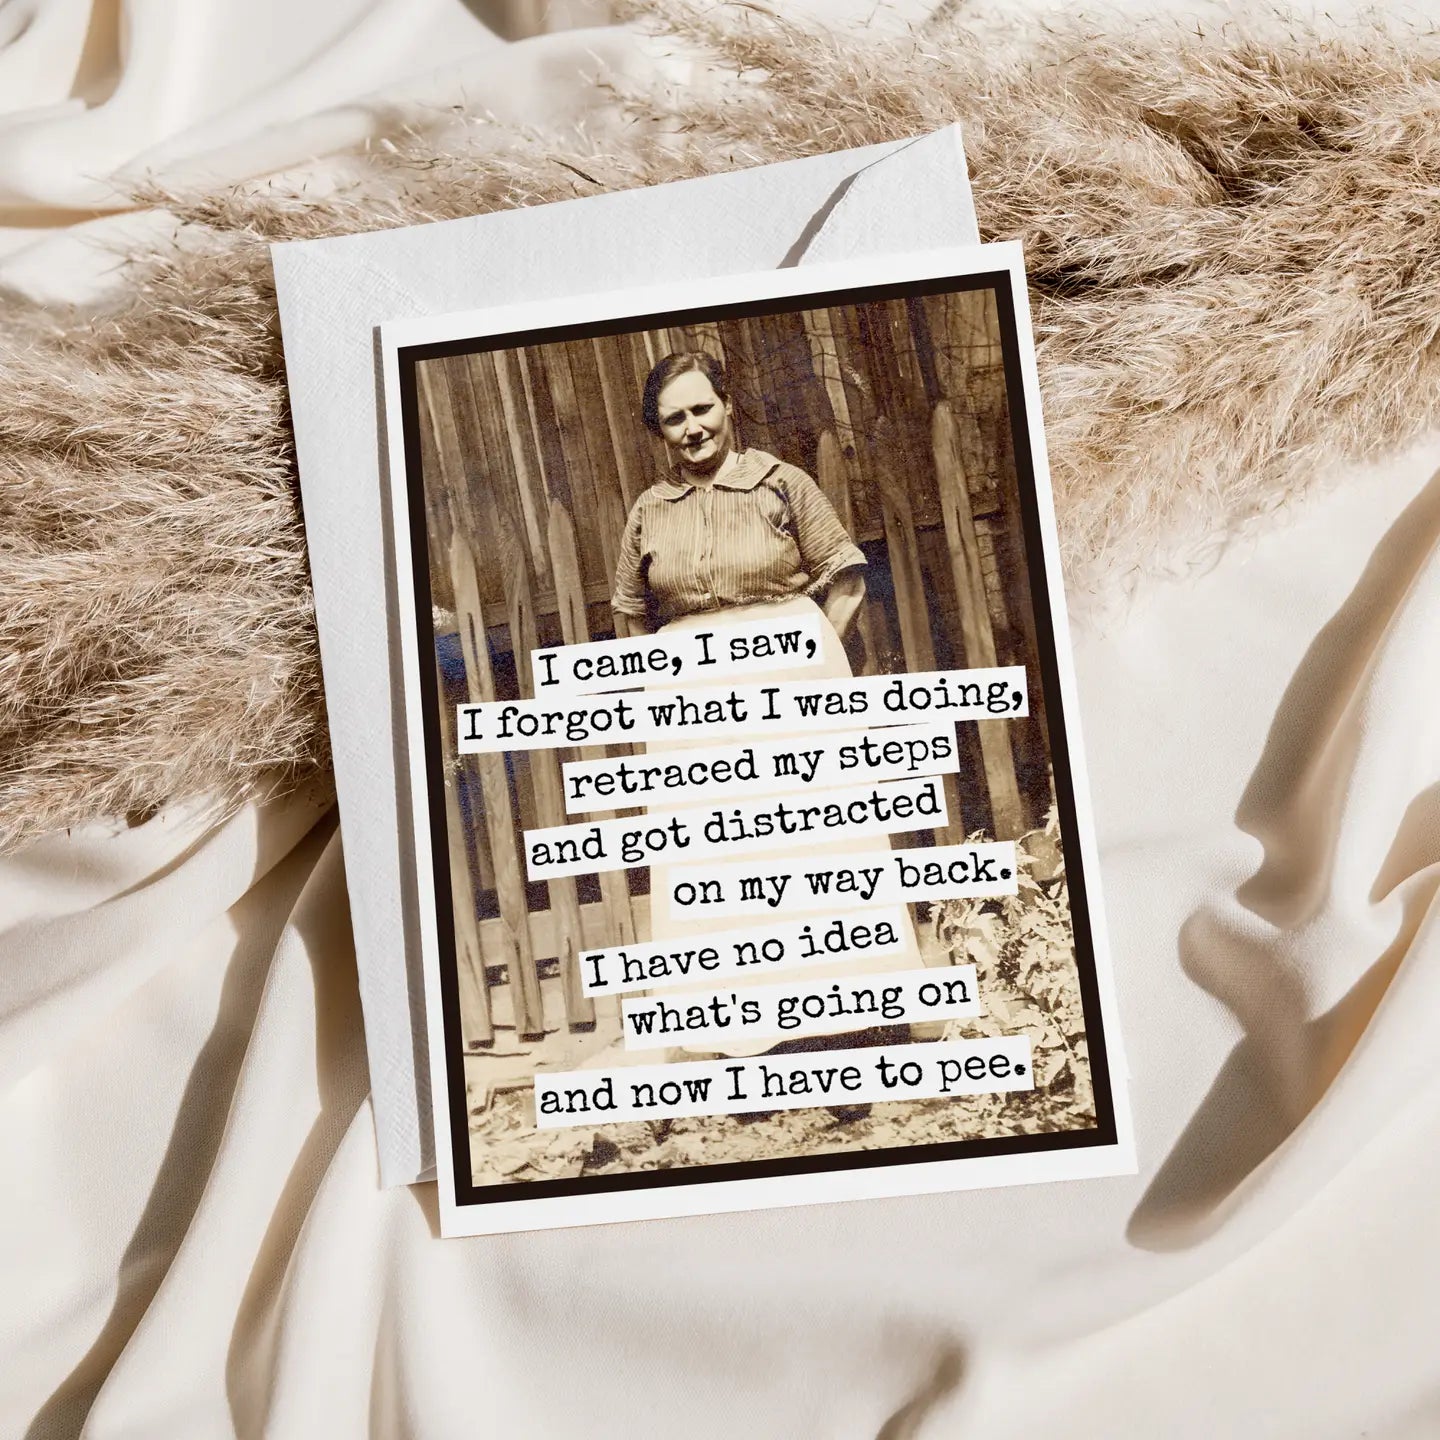 I came, I saw,
I forgot what I was doing,
retraced my steps
and got distracted
on my way back.
I have no idea
what's going on
and now I have to pee.